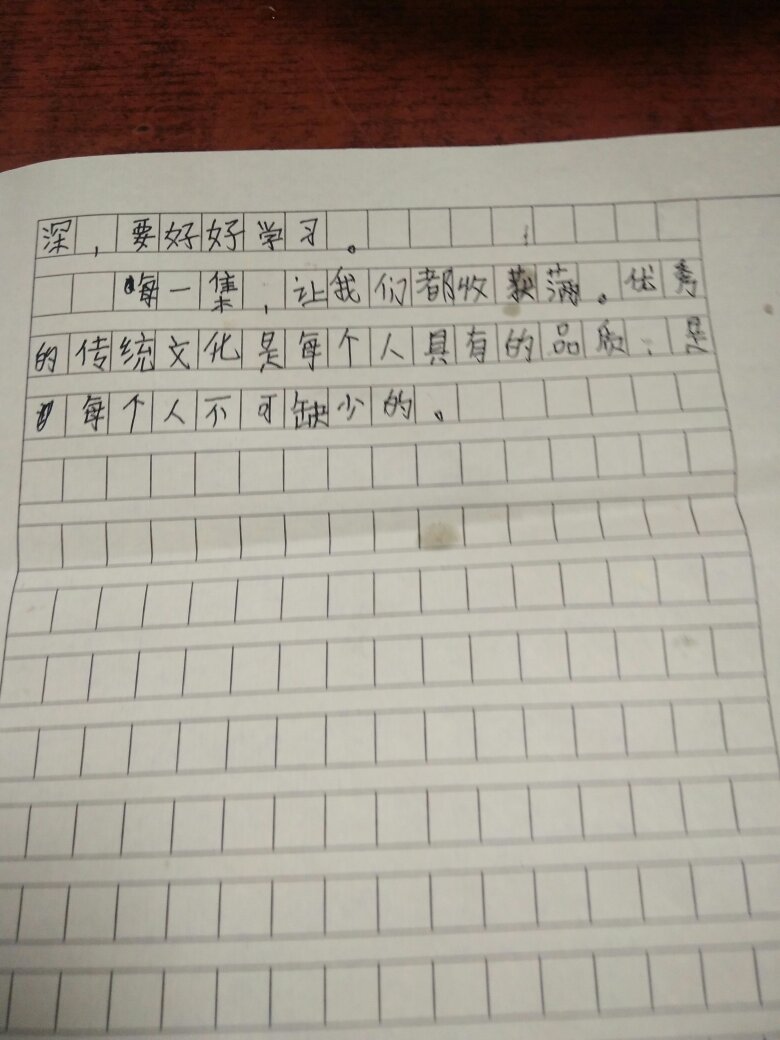 深，要好好学习。
每一集，让我们都收获满。优秀
的传统文化是每个人具有的品质，是
每个人不可缺少的。